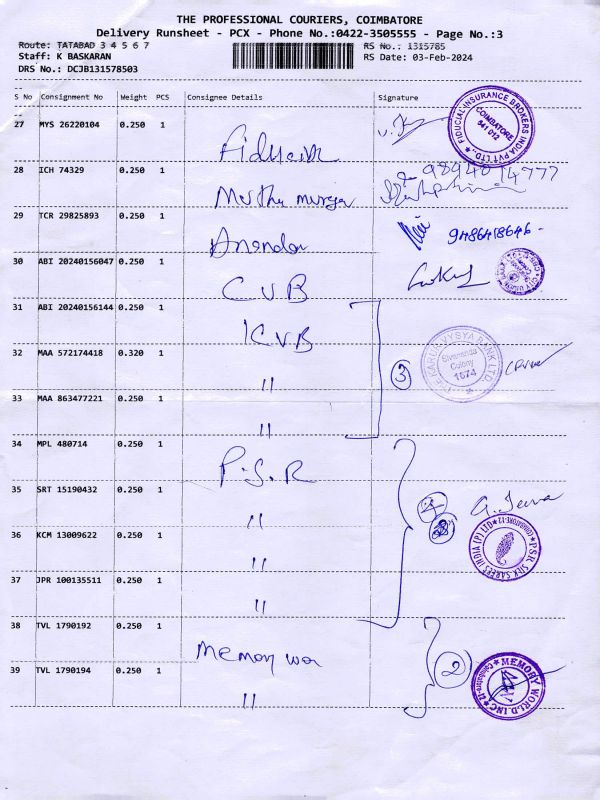 THE PROFESSIONAL COURIERS, COIMBATORE
Delivery Runsheet - PCX - Phone No.:0422-3505555 - Page No.:3
Route: TATABAD 3 4 5 6 7
RS No.: 1315785
Staff: K BASKARAN
RS Date: 03-Feb-2024
DRS No.: DCJB131578503
S No Consignment No Weight PCS Consignee Details Signature
27 MYS 26220104 0.250 1
FIDUCIAL INSURANCE BROKERS INDIA PVT LTD.,
COIMBATORE
641 012
28 ICH 74329 0.250 1
Muthu
29 TCR 29825893 0.250 1
9486418646 -
30 ABI 20240156047 0.250 1
CUB
31 ABI 20240156144 0.250 1
KVB
32 MAA 572174418 0.320 1
"
3
THE KARUR VYSYA BANK LTD.
Sivananda
Colony
1674
33 MAA 863477221 0.250 1
"
34 MPL 480714 0.250 1
P.S.R
35 SRT 15190432 0.250 1
"
4
G. Jeeva
36 KCM 13009622 0.250 1
"
P.S.R SILK SAREES INDIA (P) LTD
COIMBATORE-12
37 JPR 100135511 0.250 1
"
38 TVL 1790192 0.250 1
Memory wor
39 TVL 1790194 0.250 1
"
2
MEMORY WORLD.INC
Coimbatore-12